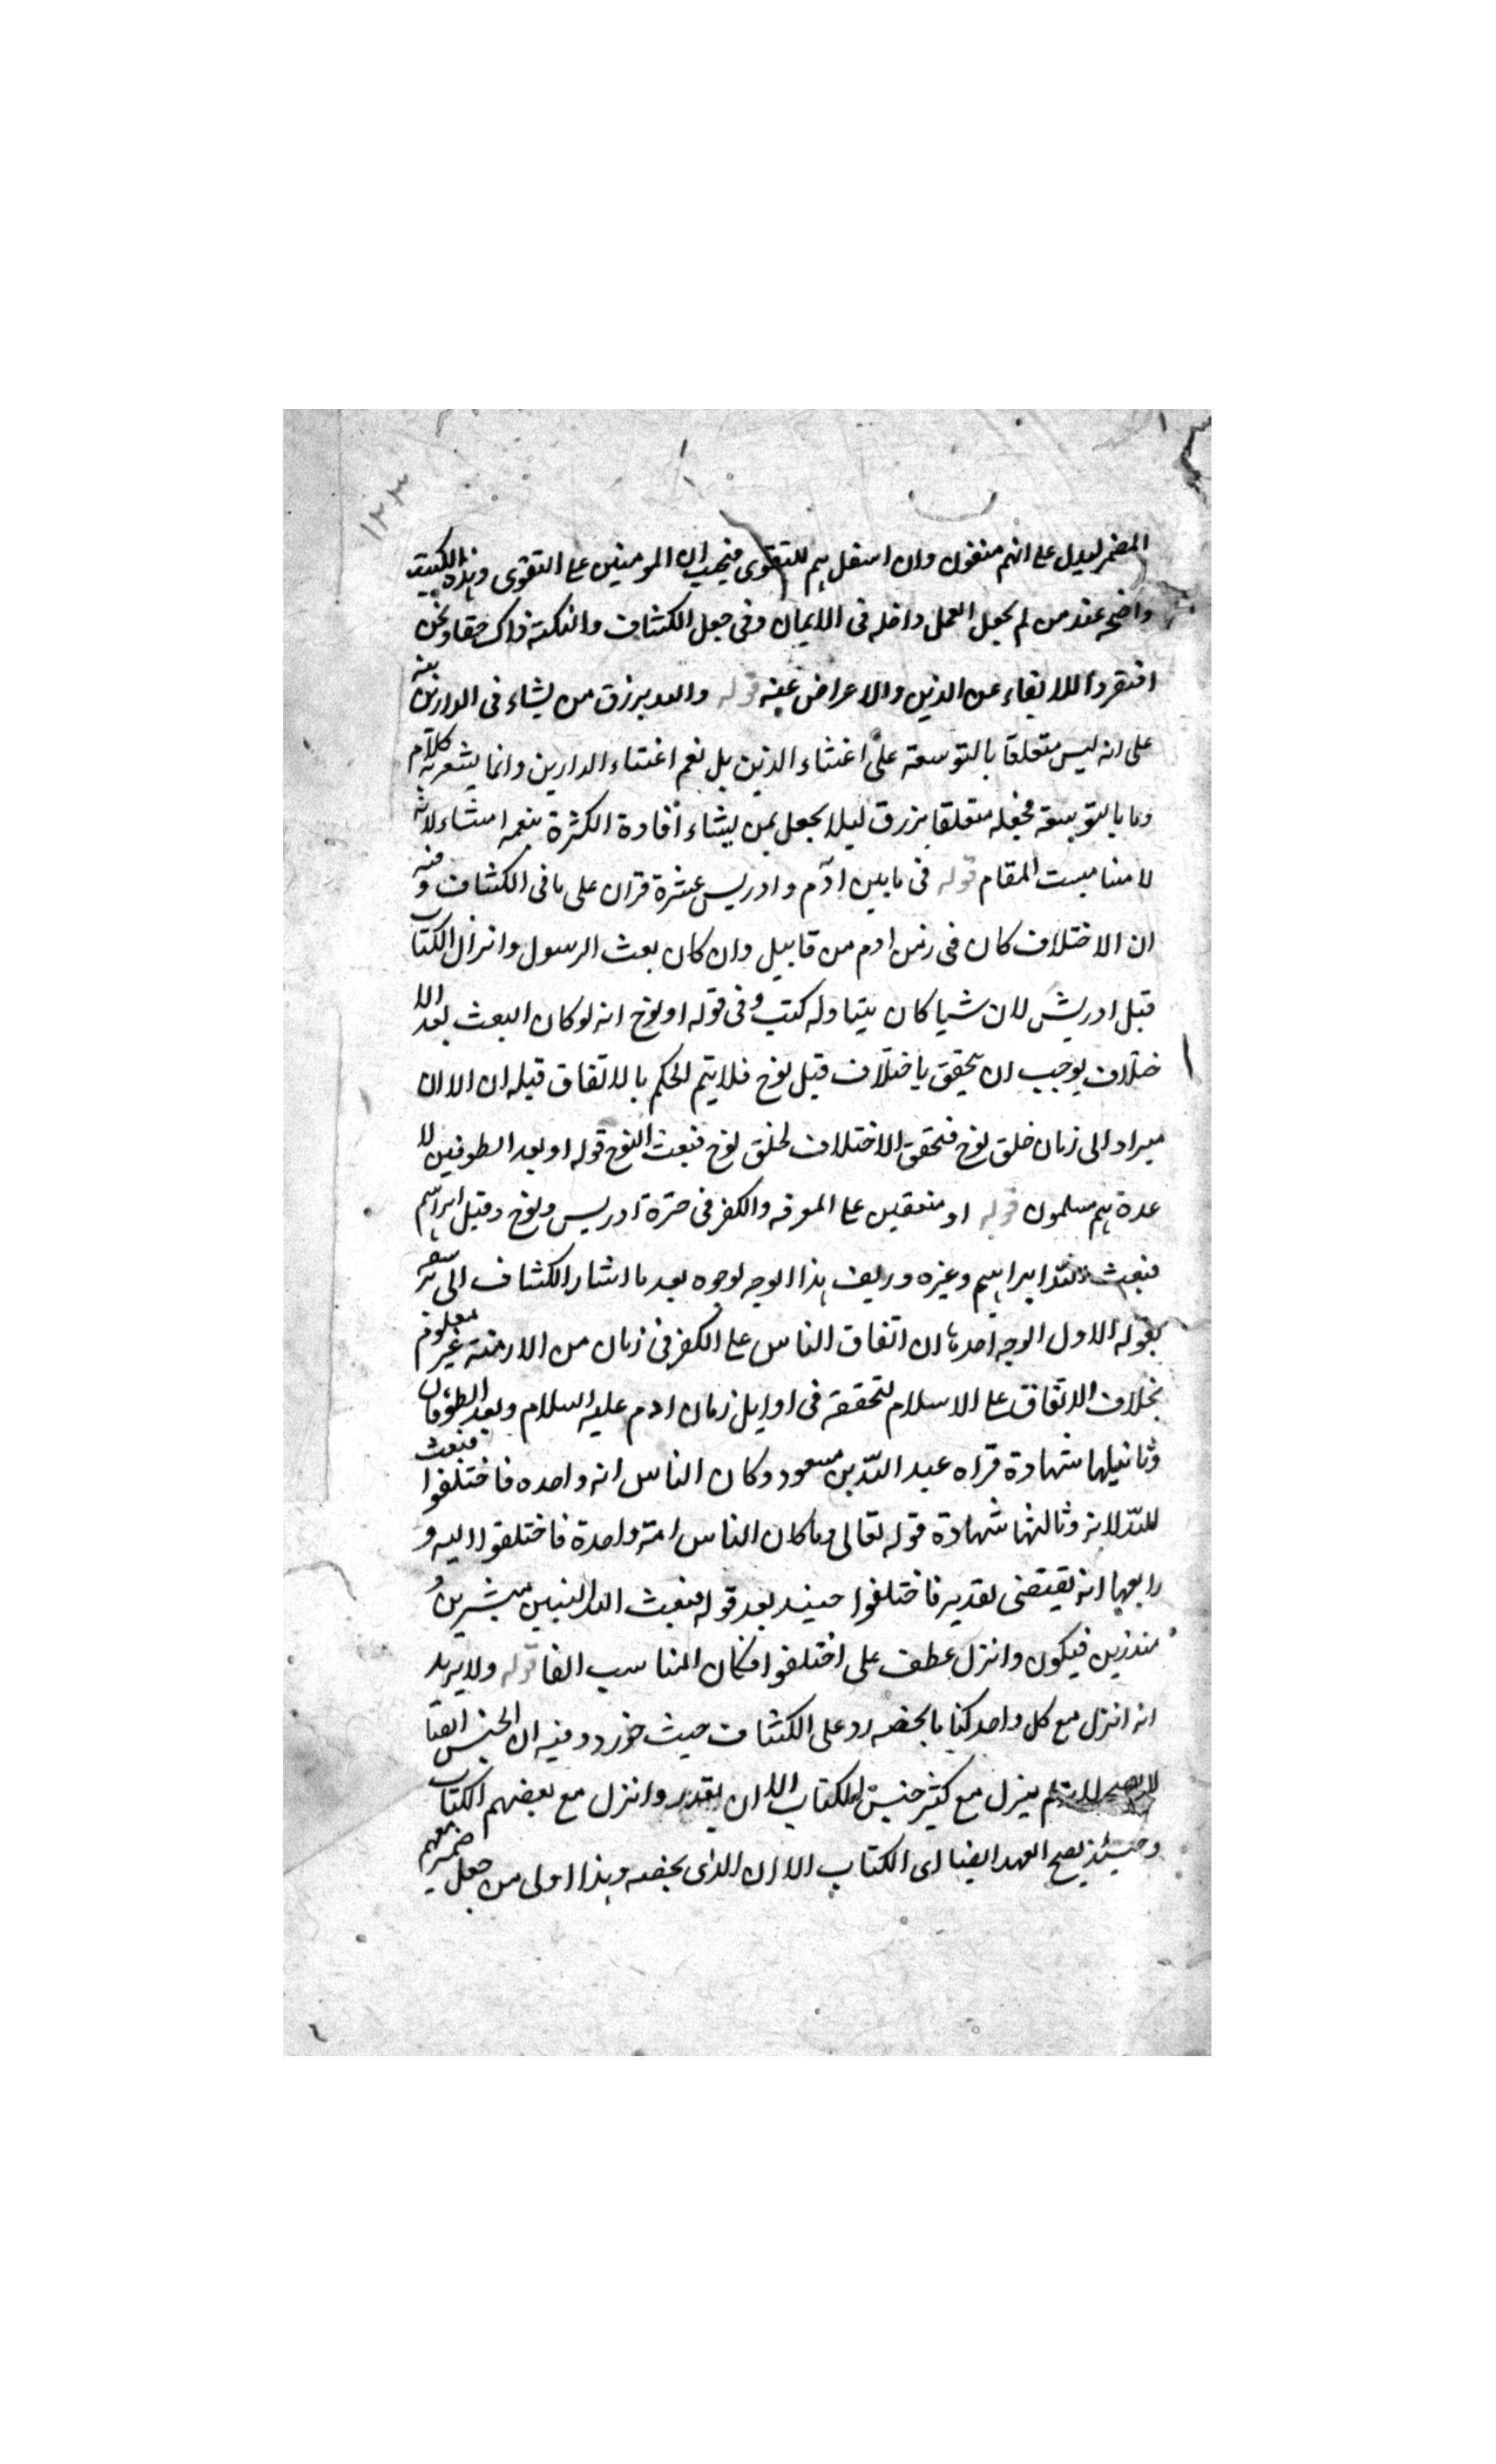 ١٢٣
المضمر ليدل على انهم متقون وان استعلاهم للتقوى فيجب ان المومنين على التقوى وهذه النكتة
واضحة عند من لم يجعل العمل داخله فى الايمان وفى جعل الكشاف والنكتة ذاك حقا ونحن
افتقروا للاتقاء عن الدنيا والاعراض عنه قوله والله يرزق من يشاء فى الدارين نبه
على انه ليس متعلقا بالتوسعة على اغنياء الدنيا بل نعم اغنياء الدارين وانما يشعر به كلام
وما بالتوسعة فجعله متعلقا بيرزق ليلا يجعل بمن يشاء افادة الكثرة بنعمه لانه
لا مناسبت المقام قوله فى ما بين ادم وادريس عشرة قران على ما فى الكشاف وفيه
ان الاختلاف كان فى زمن ادم من قابيل وان كان بعث الرسول وانزال الكتاب
قبل ادريس لان شيا كان بينهما وله كتب وفى قوله او نوح انه لو كان البعث بعد الا
ختلاف يوجب ان يتحقق باختلاف قبل نوح فلا يتم الحكم بالاتفاق قبله ان الا ان
ميراد الى زمان خلق نوح فتحقق الاختلاف لخلق نوح فبعث النوح قوله او بعد الطوفين لا
عدة هم مسلمون قوله او متفقين على المعرفه والكفر فى حترة ادريس ونوح وقبل ابراهيم
فبعث الله ابراهيم وغيره وزيف هذا الوجه لوجوه بعد ما اشار الكشاف الى
بقوله الاول الوجه احدها ان اتفاق الناس على الكفر فى زمان من الازمنة غير معلوم
بخلاف الاتفاق على الاسلام لتحققه فى اوايل زمان ادم عليه السلام وبعد الطوفان
وثانيلها شهادة قراه عبد الله بن مسعود وكان الناس انه واحده فاختلفوا فبعث
لله لانه وثالثها شهادة قوله تعالى وما كان الناس امة واحدة فاختلفوا اليه و
رابعها انه يقتضى تقدير فاختلفوا حينيد بعد قوله فبعث الله النبيين مبشرين و
منذرين فيكون وانزل عطف على اختلفوا فكان المناسب الفا قوله ولا يريد
انه انزل مع كل واحد كتابا بخصه رد على الكشاف حيث جوزه وفيه ان الجنس ايضا
لا يصح لانه لم ينزل مع كثير جنس الكتاب الا ان يقدر وانزل مع بعضهم الكتاب
وحينئذ يصح العهد ايضا اى الكتاب الا ان الذى بخصه وهذا اولى من جعل ضمير معهم